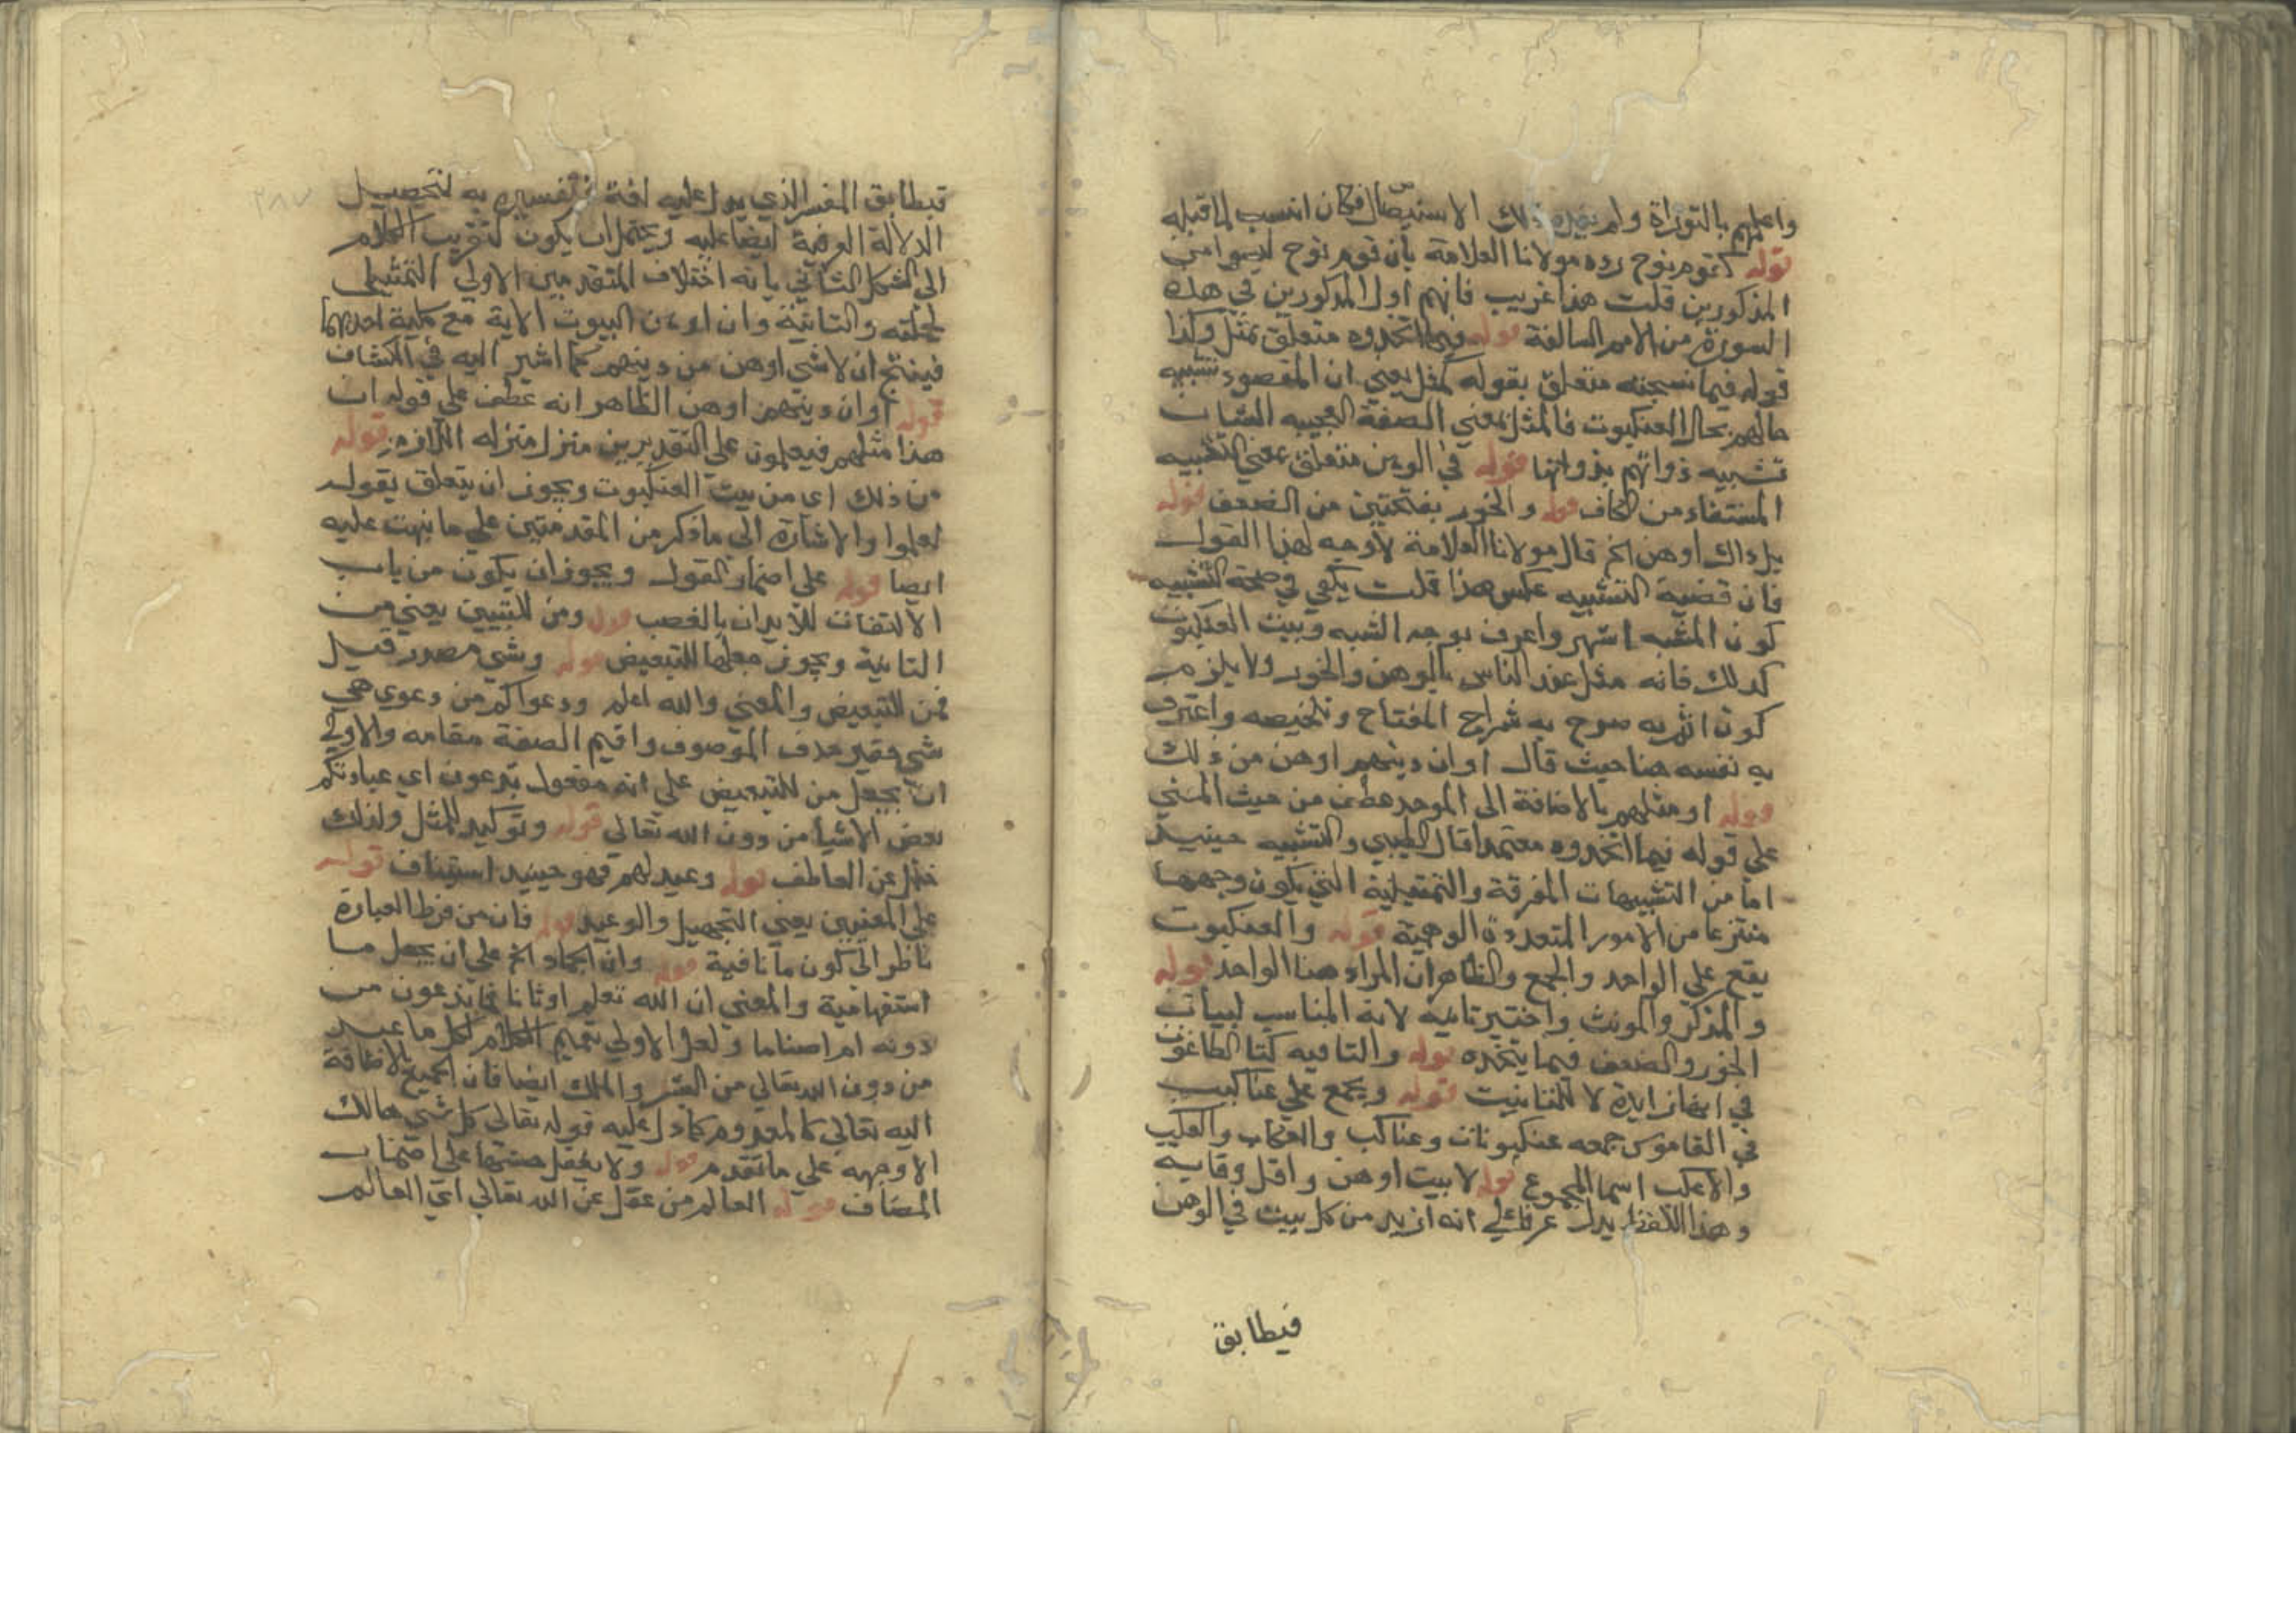 واعلمهم بالتوراة ولم يفده ذلك الاستيصال فكان انسب لما قبله
قوله كقوم نوح رده مولانا العلامة بان قوم نوح ليسوا من
المذكورين قلت هذا غريب فانهم اول المذكورين في هذه
السورة من الامم السالفة قوله فيما اتخذوه متعلق بمثل وكذا
قوله فيما نسجته متعلق بقوله كمثل يعني ان المقصود تشبيه
حالهم بحال العنكبوت فالمثل بمعني الصفة العجيبه الشان
تشبيه ذواتهم بذواتها قوله في الوهن متعلق بمعني التشبيه
المستفاد من الكاف قوله والخور بفتحتين من الضعف قوله
بل ذاك اوهن الخ قال مولانا العلامة لا وجه لهذا القول
فان قضية التشبيه عكس هذا قلت يكفي في صحة التشبيه
كون المشبه اشهر واعرف بوجه الشبه وبيت العنكبوت
كذلك فانه مثل عند الناس بالوهن والخور ولا يلزم
كون اتم به صرح به شراح المفتاح وتلخيصه واعترف
به نفسه هنا حيث قال اوان دينهم اوهن من ذلك
قوله او مثلهم بالاضافة الى الموحد عطف من حيث المعني
علي قوله فيما اتخذوه معتمدا قال الطيبي والتشبيه حينيذ
اما من التشبيهات المفرقة والتمثيلية التي يكون وجهها
منتزعا من الامور المتعددة الوهمية قوله والعنكبوت
يقع علي الواحد والجمع والظاهر ان المراد هنا الواحد قوله
والمذكر والمونث واختير تانيثه لانه المناسب لبيان
الخور والضعف فيما يتخذه قوله والتا فيه كتا الطاغوت
في انها زايدة لا للتانيث قوله ويجمع علي عناكيب
في القاموس جمعه عنكبوتات وعناكب والعكاب والعكب
والاعكب اسما الجموع قوله لا بيت اوهن واقل وقايه
وهذا اللفظ يدل عرفا علي انه ازيد من كل بيت في الوهن
فيطابق
فيطابق المفسر الذي يدل عليه لغة تفسيره به لتحصيل
الدلالة العرفية ايضا عليه ويحتمل ان يكون لتقريب الكلام
الى الشكل الثاني بانه اختلاف المتقدمين الاولي التمثيل
لجملته والثانية وان اوهن البيوت الاية مع كلية احديهما
فينتج ان لا شي اوهن من دينهم كما اشير اليه في الكشاف
قوله او ان دينهم اوهن الظاهر انه عطف علي قوله ان
هذا مثلهم فيعلمون علي التقديرين منزل منزله اللازم قوله
من ذلك اي من بيت العنكبوت ويجوز ان يتعلق بقوله
لعلموا والاشارة الى ما ذكر من المقدمتين علي ما نبهت عليه
ايضا قوله علي اضمار القول ويجوز ان يكون من باب
الالتفات للايدان بالغضب قوله ومن للتبيين يعني من
الثانية ويجوز جعلها للتبعيض قوله وشي مصدر قيل
فمن للتبعيض والمعني والله اعلم ودعواكم من دعوي هي
شي حقير حذف الموصوف واقيم الصفة مقامه والاولي
ان يجعل من للتبعيض علي انه مفعول تدعون اي عبادتكم
بعض الاشيا من دون الله تعالى قوله وتوكيد للمثل ولذلك
خلي عن العاطف قوله وعيد لهم فهو حينيد استيناف قوله
علي المعنيين يعني التجهيل والوعيد قوله فان من فرط العباوة
ناظر الى كون ما نافية قوله وان الجماد الخ علي ان يجعل ما
استفهامية والمعني ان الله تعلم اوثانا تدعون من
دونه ام اصناما ولعل الاولي تعميم الكلام لكل ما عبد
من دون الله تعالي من البشر والملك ايضا فان الجميع بالاضافة
اليه تعالي كالمعدوم كما دل عليه قوله تعالى كل شي هالك
الا وجهه علي ما تقدم قوله ولا يعقل حسنها علي
المضاف قوله العالم من عقل عن الله تعالي اي العالم